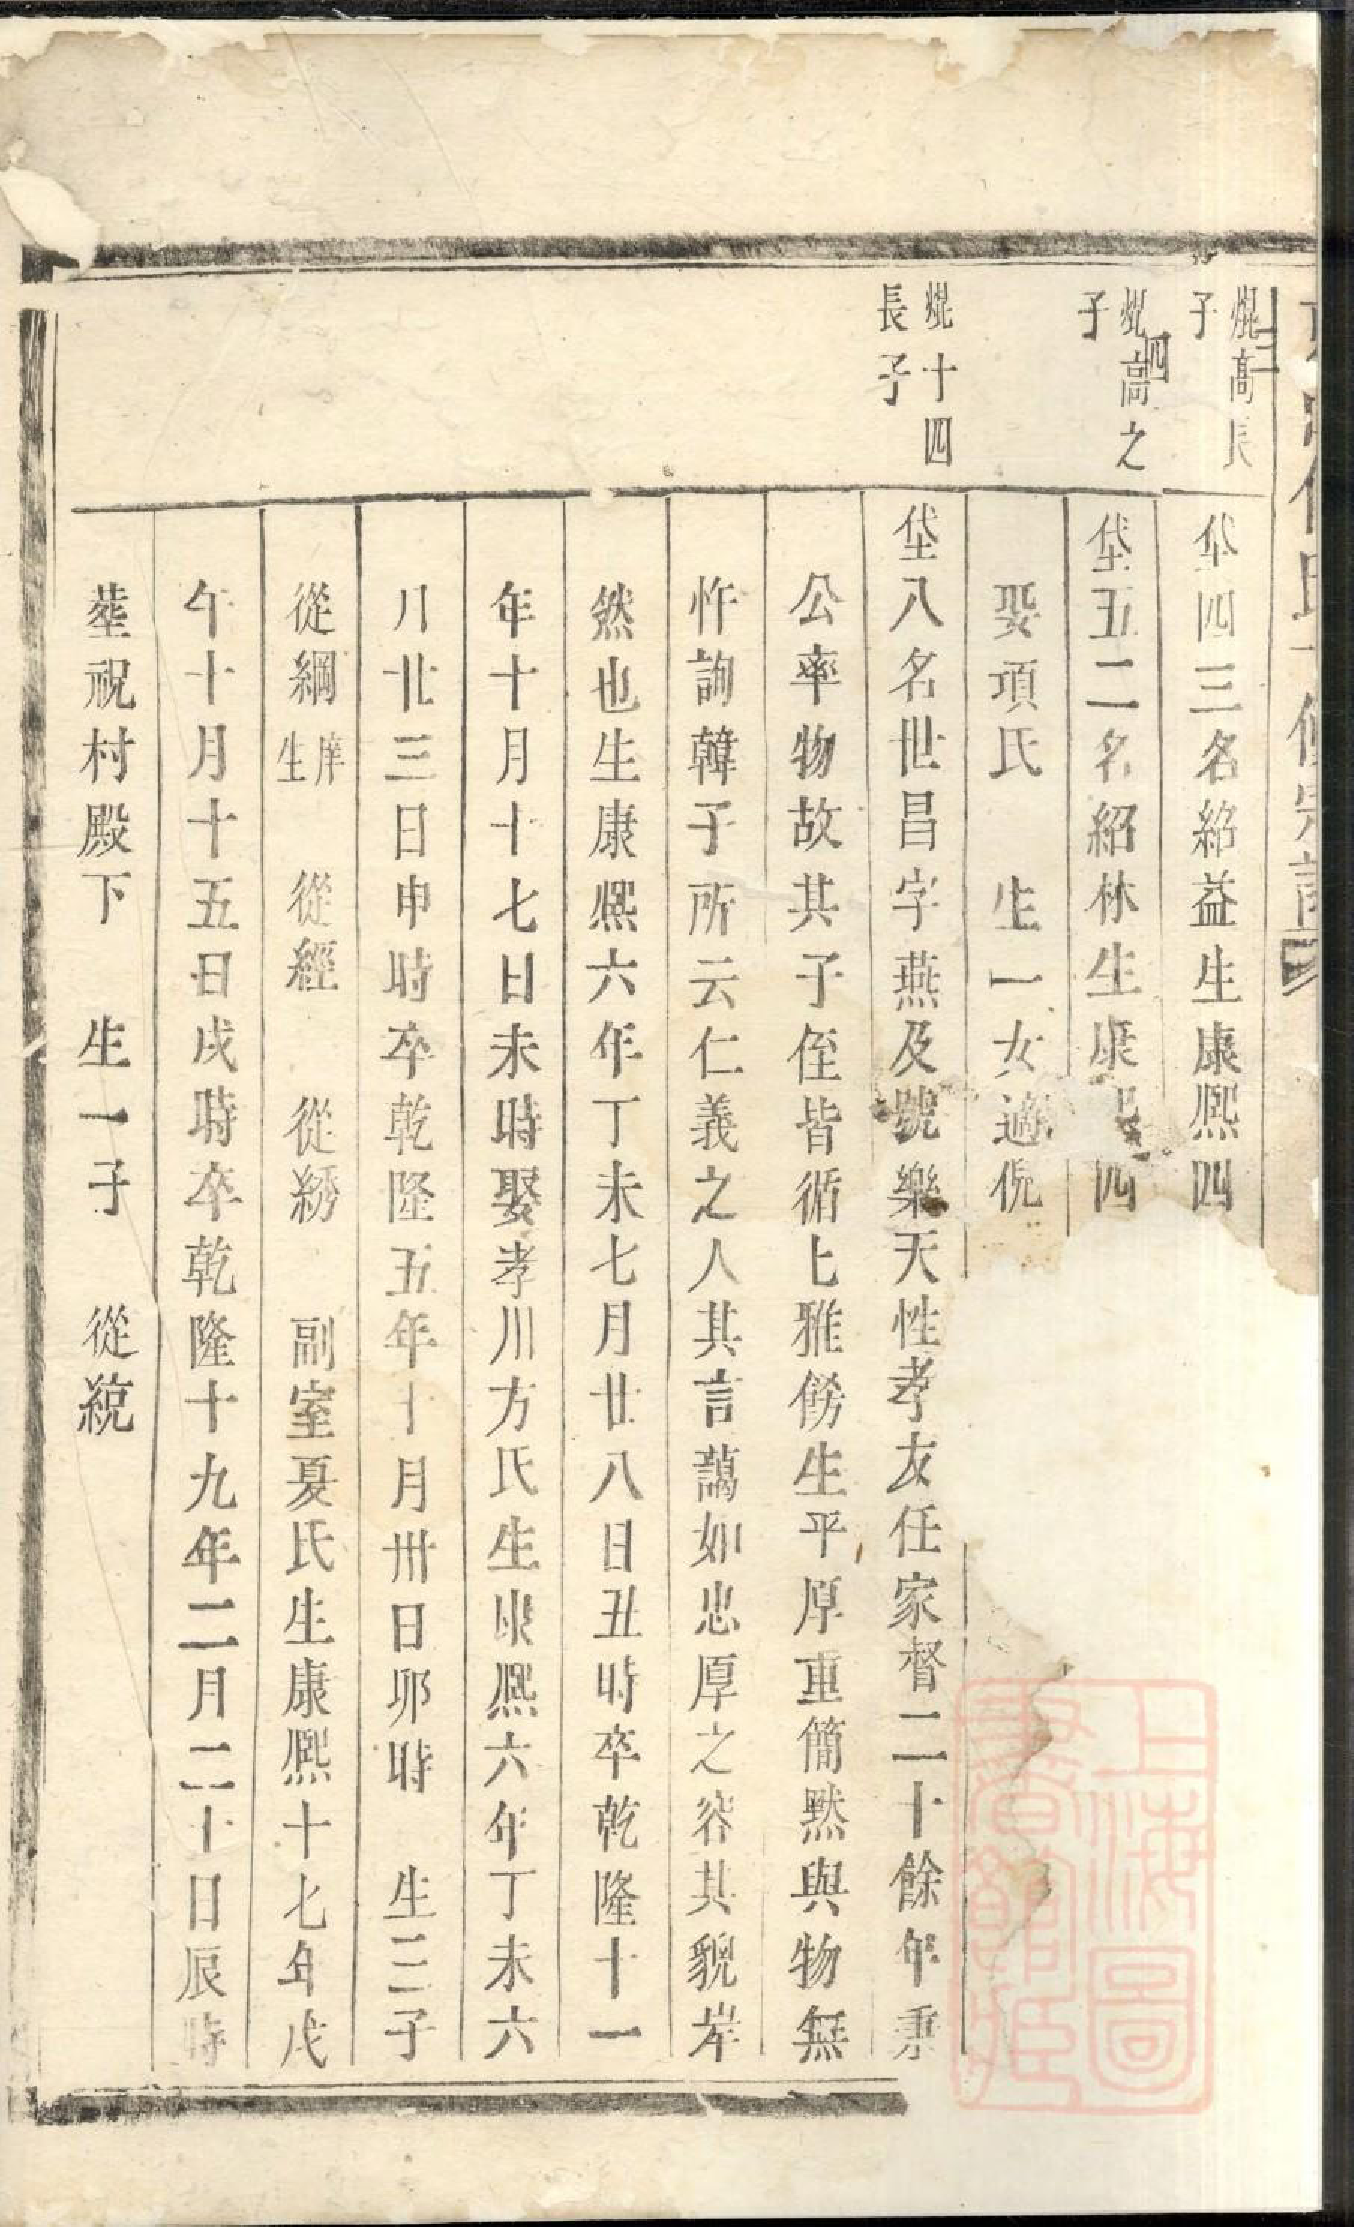 高長
子
垈四三名紹益生康熙四
高之
子
垈五二名紹林生康熙四
娶項氏　生一女適倪
焜十四
長子
垈八名世昌字燕及號樂天性孝友任家督二十餘年秉
公率物故其子侄皆循上雅飭生平厚重簡默與物無
忤詢韓子所云仁義之人其言藹如忠厚之容其貌岸
然也生康熙六年丁未七月廿八日丑時卒乾隆十一
年十月十七日未時娶孝川方氏生康熙六年丁未六
月廿三日申時卒乾隆五年十月卅日卯時　生三子
從綱庠生　從經　從綉　副室夏氏生康熙十七年戊
午十月十五日戌時卒乾隆十九年二月二十日辰時
塟祝村殿下　生一子　從統
上海圖
書館藏